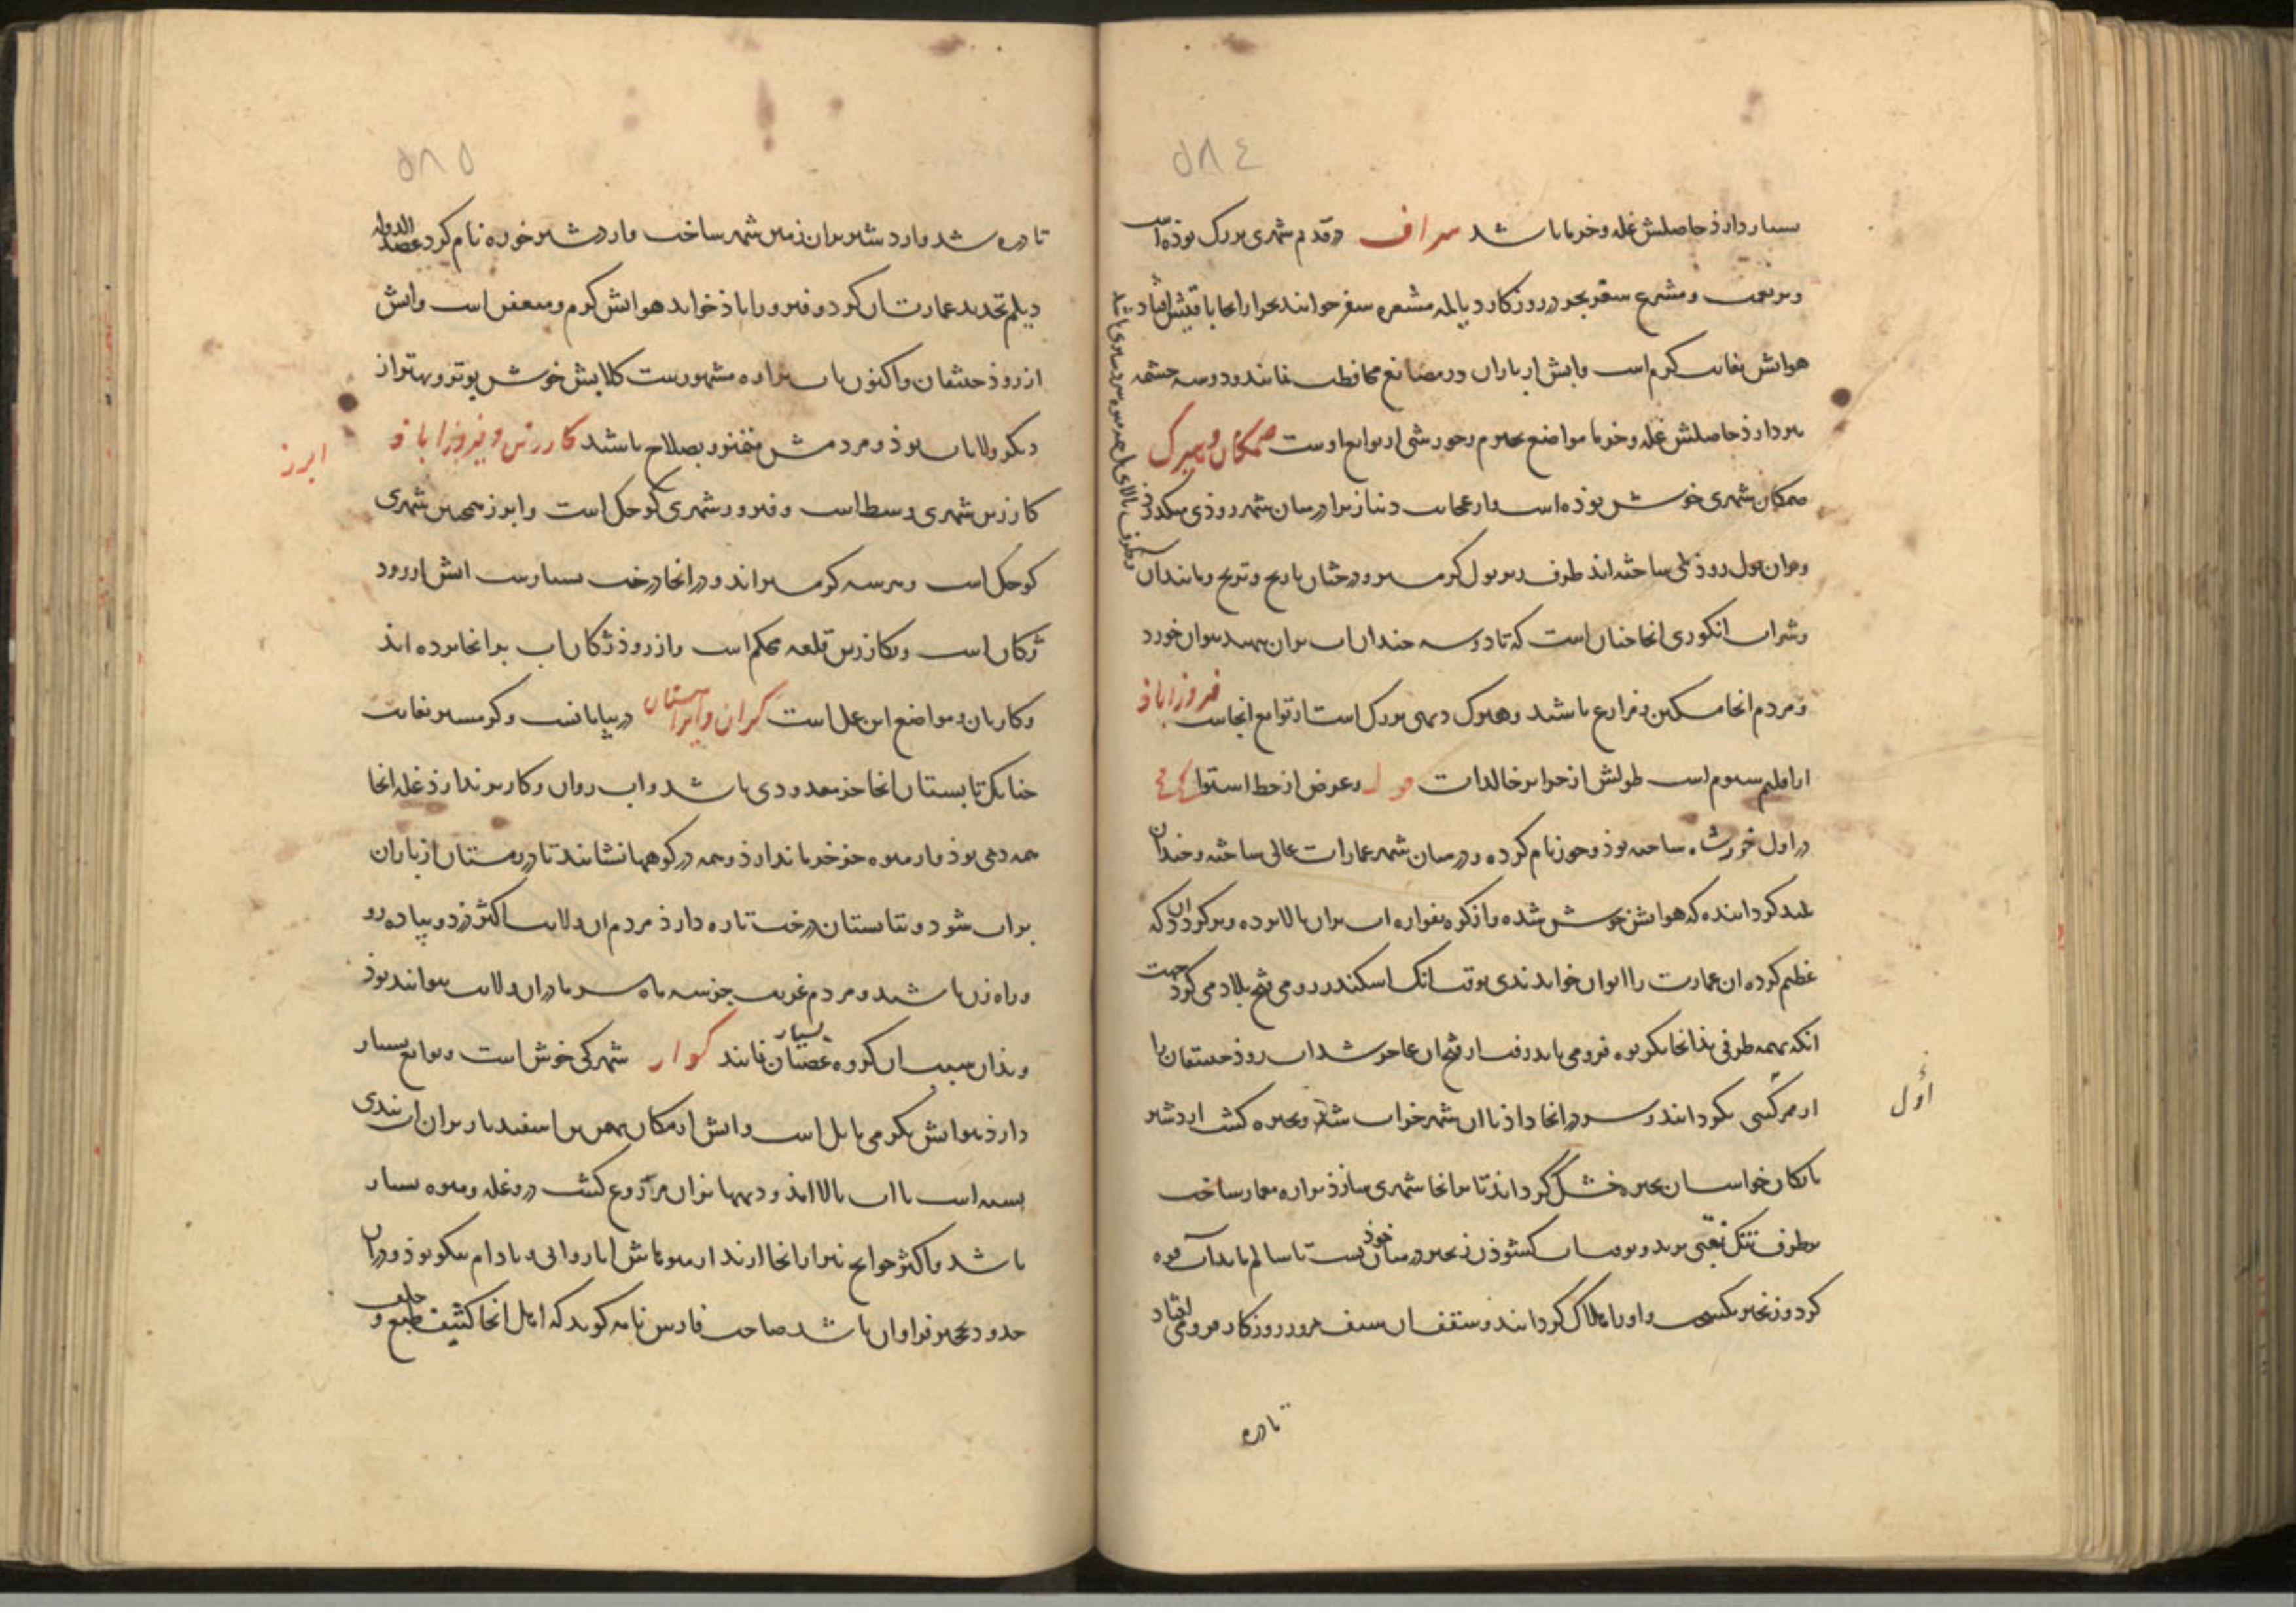 ۵۸۴
بسیار دارذ حاصلش غله و خرما باشد سیراف در قدیم شهری بزرک بوذه است
و پر نعمت و مشرع سفر بحر در روزکار دیالمه مشعره سفر خوانند بحر از انجا با قیش افتاد
هوایش بغایت کرم است و ابش از باران در مصانع محافظت نمایند و دو سه چشمه
نیز دارذ حاصلش غله و خرما مواضع نجیرم و خورشی از توابع اوست صمکان و هیرک
صمکان شهری خوش بوذه است و از عجایب دنیا زیرا در میان شهر روذی میکذرذ
و بران پول روذ پلی ساخته اند طرف زیر پول کرمسیر و درختان نارنج و ترنج و مانند آن
و طرف بالای پل همه میوه سردسیری باشد
و شراب انکوری انجا چنان است که تا دو سه چندان اب بران نهند نتوان خورد
و مردم انجا مسکین و مزارع باشند و هیرک دیهی بزرک است از توابع انجاست فیروزاباذ
از اقلیم سیوم است طولش از جزایر خالدات و عرض از خط استوا
در اول خورشاه ساخته بوذ و جور نام کرده و در میان شهر عمارات عالی ساخته و چندان
بلند کردانیده که هوایش خوش شده و از کوه بفواره اب بران بالا برده و بر کرد ان دکه
عظیم کرده ان عمارت را ایوان خواندندی بوقت انک اسکندر رومی فتح بلاد می کرد جهت
انکه بهمه طرفی بذانجا بکریوه فرو می باید رفت از فتح ان عاجز شد اب روذ حنیفقان را
از ممر کسی بکردانید و سر در انجا داذ تا ان شهر خراب شد و بحیره کشت اردشیر
اول
بابکان خواست ان بحیره خشک کرداند تا بر انجا شهری سازذ براره معمار ساخت
بطرف تنک نقبی برید و بوقت اب کشوذن زنجیر در میان خوذ بست تا سالم بماند اب قوه
کرد و زنجیر بکسست و او را هلاک کردانید و سقف ان نقب هر روز روزکار فرو می افتاد
تا دره
۵۸۵
تا دره شد و اردشیر بران زمین شهر ساخت و اردشیر خوره نام کرد عضد الدوله
دیلم تجدید عمارت ان کرد و فیروزاباذ خواند هوایش کرم و متعفن است و ابش
از روذ حنیفقان و اکنون باب براره مشهورست کلابش خوش بوتر و بهتر از
دیکر ولایات بوذ و مردمش متمیز و بصلاح باشند کارزین و فیروزاباذ
ابرز
کارزین شهری وسط است و فیروز شهری کوچک است و ابرز همچنین شهری
کوچک است و هر سه کرمسیراند و در انجا درخت بسیارست ابش از رود
ژکان است و بکارزین قلعه محکم است و از روذ ژکان اب بر انجا برده اند
و کاریان و مواضع این عمل است کران و ایراهستان در بیابانست و کرمسیر بغایت
چنانک تابستان انجا جز معدودی باشد و اب روان و کاریز ندارذ غله انجا
همه دمی بوذ و از میوه جز خرما ندارذ و همه در کوهها نشانند تا در زمستان از باران
پر اب شود و بتابستان درخت تازه دارذ مردم ان ولایت اکثر دزد و پیاده رو
و راه زن باشند و مردم غریب جز سه ماه سرما در ان ولایت نتوانند بوذ
و بذان سبب ان کروه عصیان بسیار نمایند کوار شهرکی خوش است و توابع بسیار
دارذ هوایش بکرمی مایل است و ابش از ژکان بهمن بن اسفندیار بران اب بندی
بسته است تا اب بالا امذ و دیهها بران مزروع کشت درو غله و میوه بسیار
باشد و اکثر حوایج شیراز از انجا ارند از میوهاش انار و انی و بادام نیکو بوذ و در ان
حدود نخجیر فراوان باشد صاحب فارس نامه کوید که اهل انجا کثیف طبع و جلف